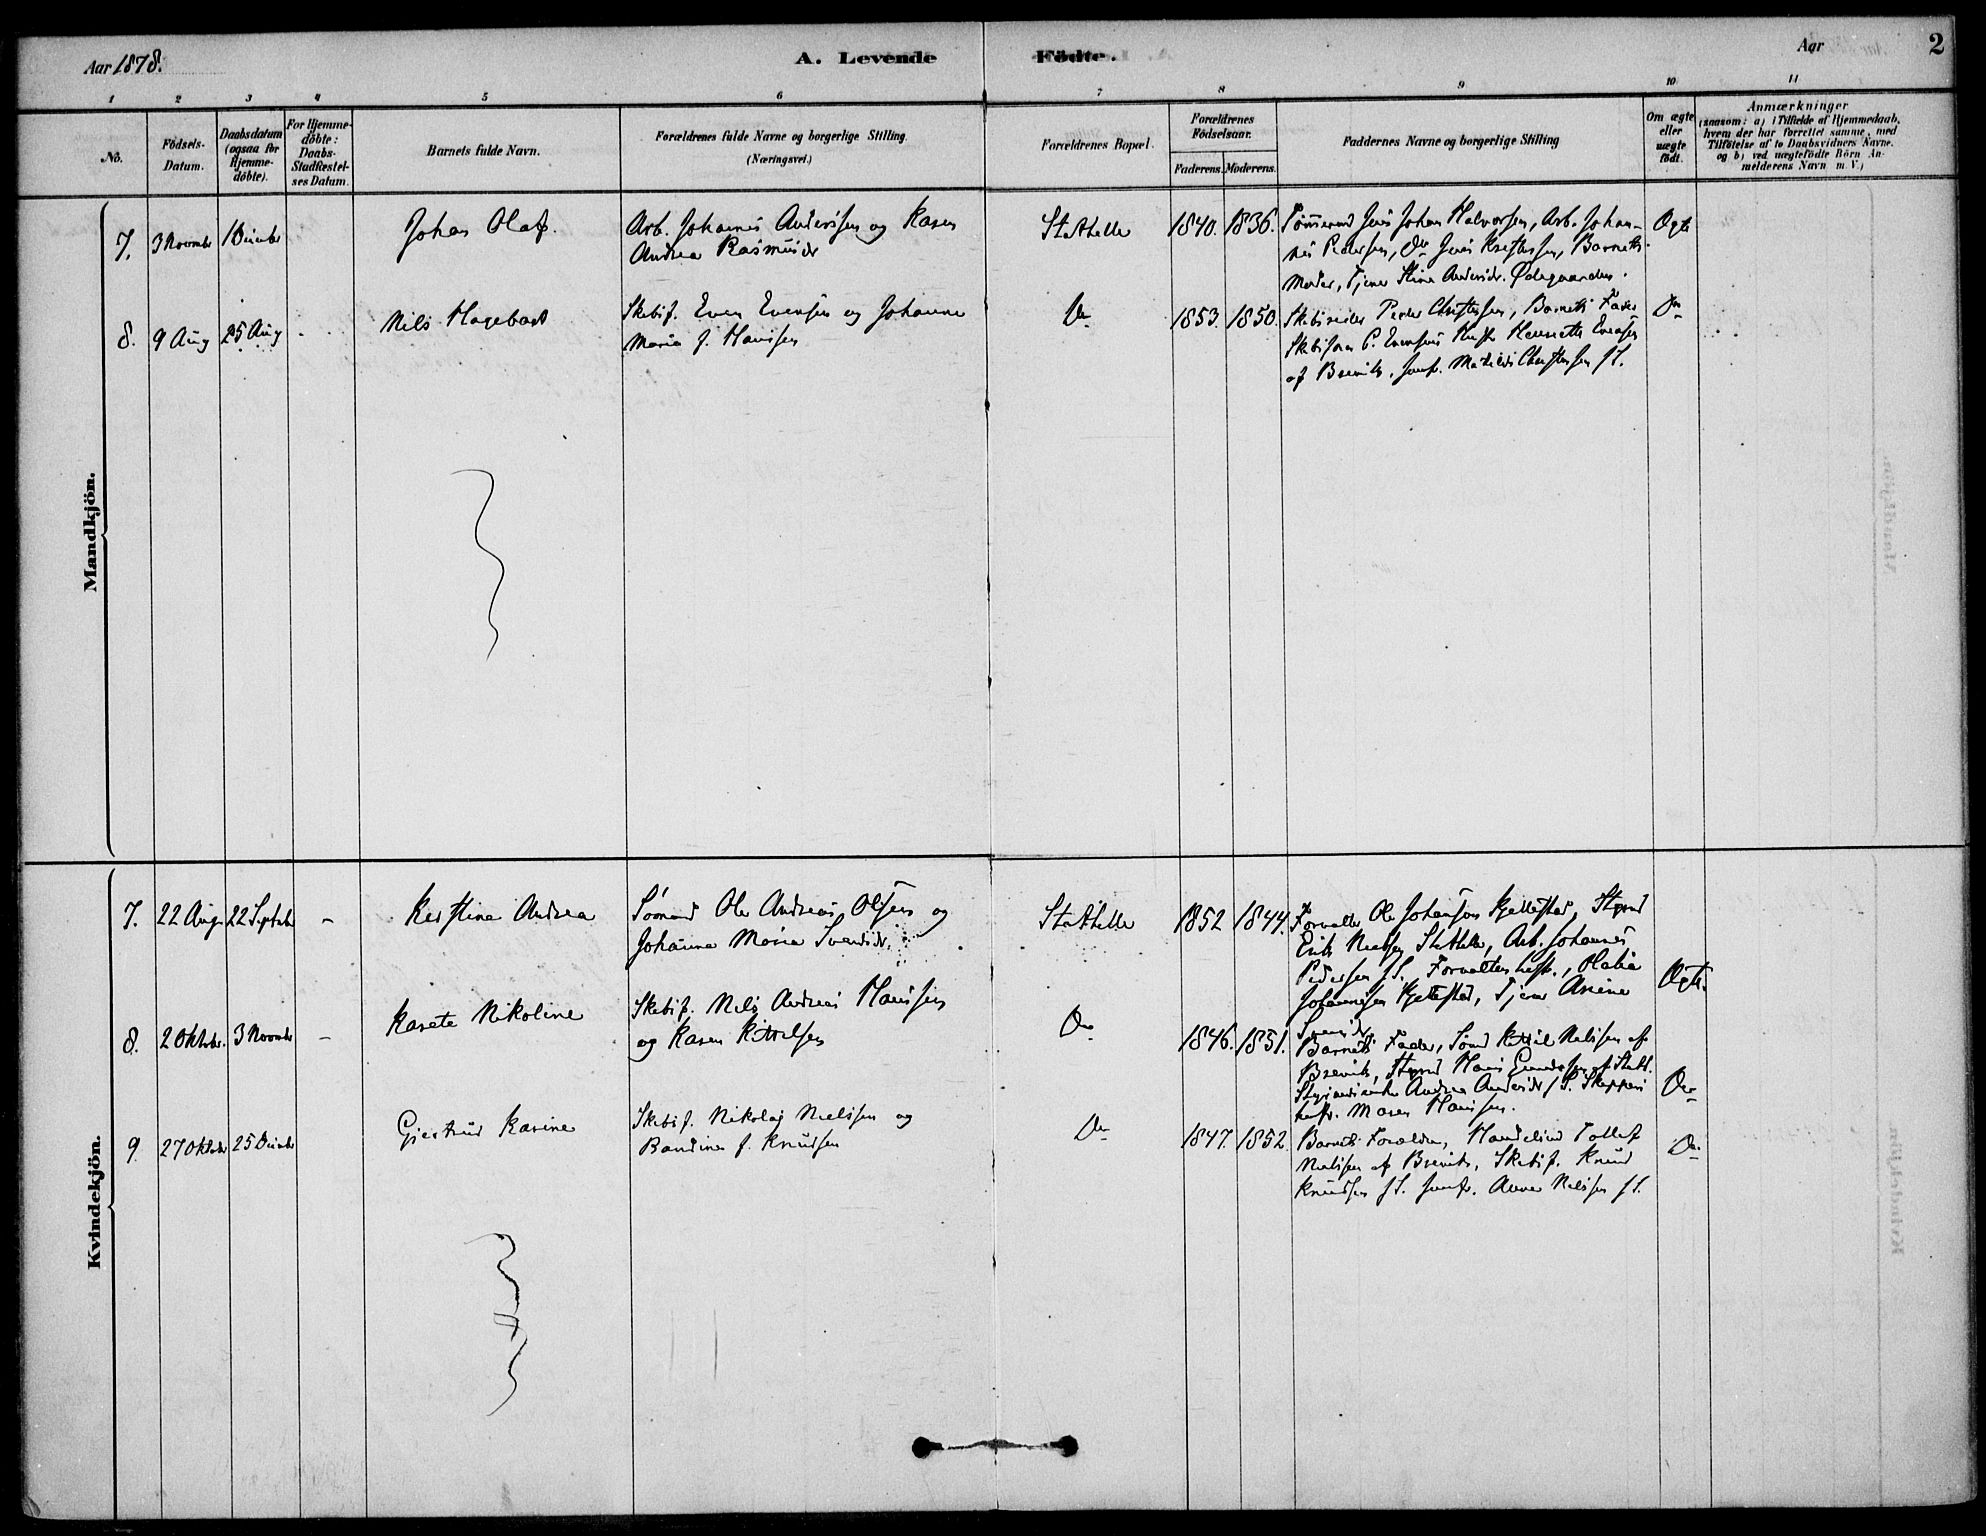 Aar 1878.
A. Levende Födte.
Aar
2
1 2 3 4 5 6 7 8 9 10 11
No.
Födsels-Datum.
Daabsdatum (ogsaa for Hjemme-döbte).
For Hjemme-döbte: Daabs-Stadfæstel-ses Datum.
Barnets fulde Navn.
Forældrenes fulde Navne og borgerlige Stilling
(Næringsvei.)
Forældrenes Bopæl.
Forældrenes Födselsaar.
Faderens. Moderens.
Faddernes Navne og borgerlige Stilling
Om ægte eller uægte födt.
Anmærkninger
(saasom: a) i Tilfælde af Hjemmedaab,
hvem der har forrettet samme, med
Tilföielse af to Daabsvidners Navne.
og b) ved uægtefödte Börn An-
melderens Navn m. V.)
Mandkjön.
7. 3 Novembr 1 Decembr Johan Olaf.
Arb. Johannes Anderssen og Karen
Andrea Rasmusdr
Stathelle 1840. 1836.
Jens Johan Halvorsen, Arb. Johan-
nes Pedersen, Do Jens Barnets
Moder, Tjener Stine Andersdr. Ødegaarden.
Ægte
8. 9 Aug 25 Aug Nils Hagebart
Skibsf. Even Evensen og Johanne
Maria f. Hanssen
Do 1853. 1850.
Skibsreder Peder Christensen, Barnets Fader
C. Evensens Henriette Evensen
af Brevik. Jomfr. Mathilde Christensen f S.
Do
Kvindekjön.
7. 22 Aug 22 Septbr - Kirstine Andrea
Sömand Ole Andreas Olsen og
Johanne Marie Svendsdr.
Stathelle 1852 1844.
Forvalter Ole Johansen Styrmd
Erik Nielsen Stathelle, Arb. Johannes
Pedersen f S. Olava
Johannesen Tjener
Svendsdr.
Ægte.
8. 2 Oktobr. 3 Novembr - Karete Nikoline
Skibsf. Nils Andreas Hanssen
og Karen Kittelsen
Do 1846. 1851.
Barnets Fader, Sömd Kittil Nielsen af
Brevik, Styrmd Hans af Stath.
Andrea Andersdr f S. Skippers
Maren Hanssen.
Do
9. 27 Oktobr 25 Decembr Gjertrud Karine
Skibsf. Nikolaj Nielsen og
Bandine f. Knudsen
Do 1847. 1852
Barnets Forældre, Tollef
Nielsen af Brevik, Skibsf. Knud
Knudsen f S. Jomfr. Anne Nielsen f S.
Do